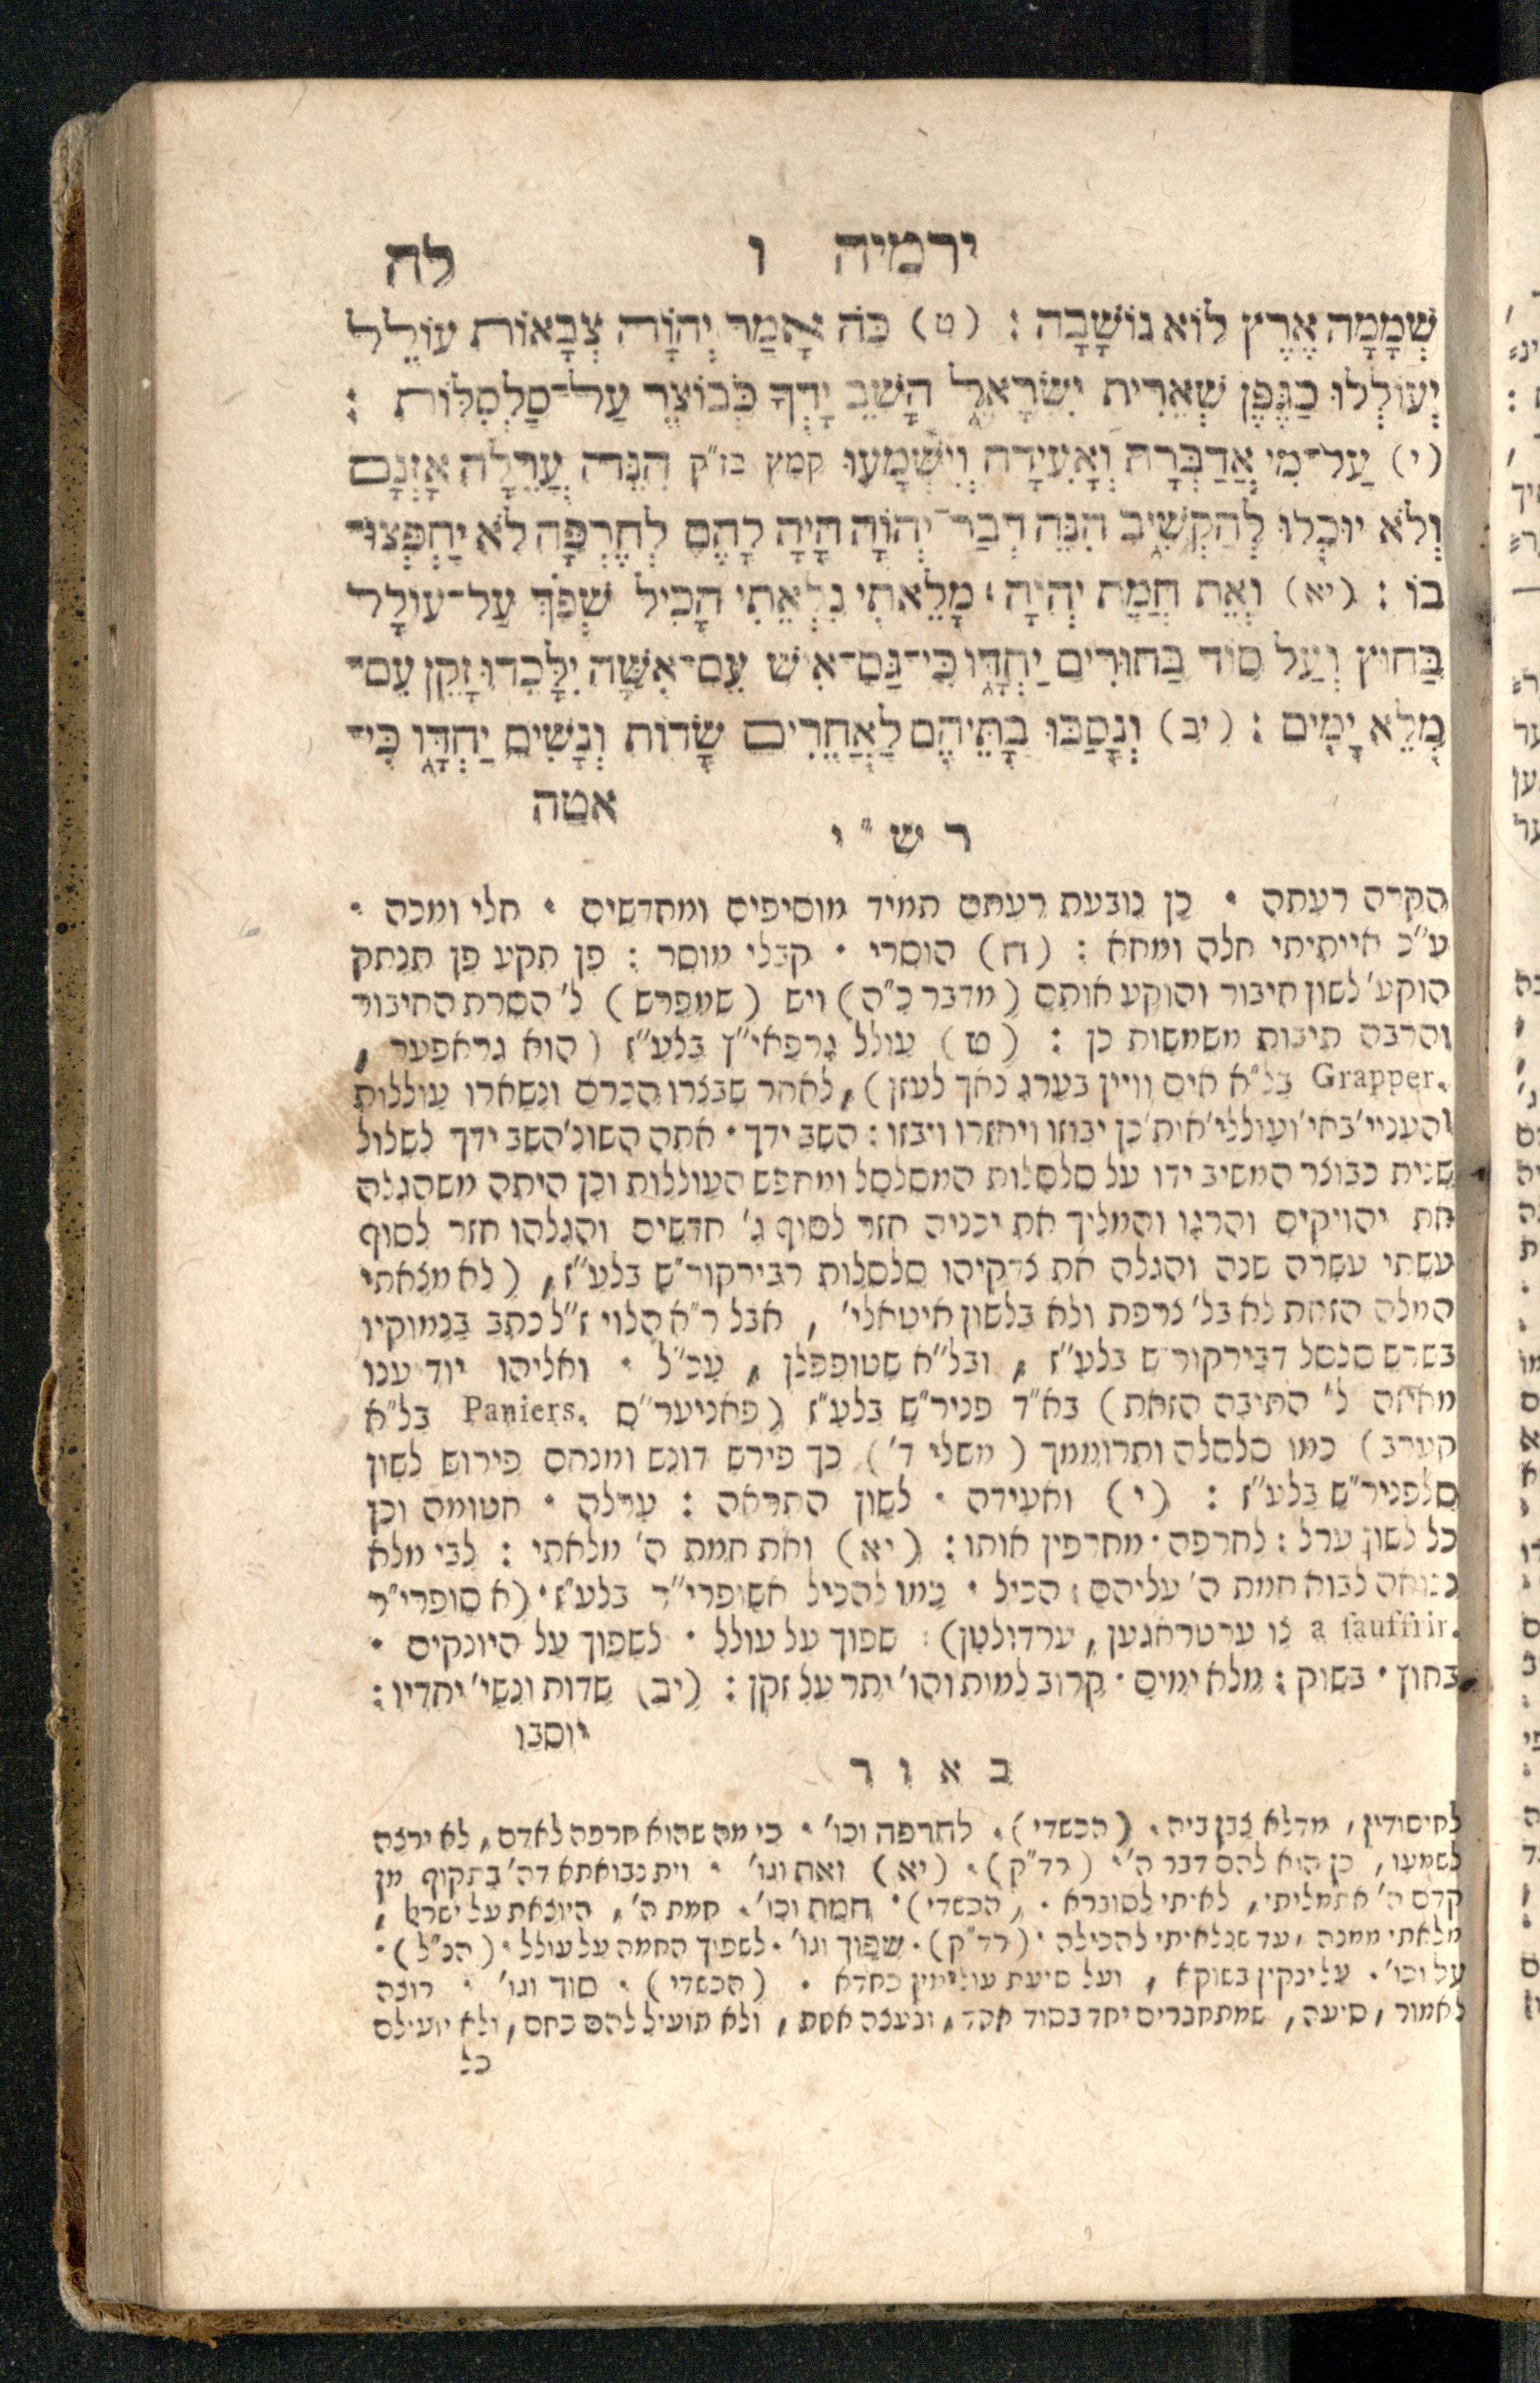 ירמיה ו לה
שְׁמָמָה אֶרֶץ לוֹא נוֹשָׁבָה : (ט) כֹּה אָמַר יְהוָה צְבָאוֹת עוֹלֵל
יְעוֹלְלוּ כַגֶּפֶן שְׁאֵרִית יִשְׂרָאֵל הָשֵׁב יָדְךָ כְּבוֹצֵר עַל־סַלְסִלּוֹת :
(י) עַל־מִי אֲדַבְּרָה וְאָעִידָה וְיִשְׁמָעוּ קמץ בז״ק הִנֵּה עֲרֵלָה אָזְנָם
וְלֹא יוּכְלוּ לְהַקְשִׁיב הִנֵּה דְבַר־יְהוָה הָיָה לָהֶם לְחֶרְפָּה לֹא יַחְפְּצוּ־
בוֹ : (יא) וְאֵת חֲמַת יְהוָה ׀ מָלֵאתִי נִלְאֵתִי הָכִיל שְׁפֹךְ עַל־עוֹלָל
בַּחוּץ וְעַל סוֹד בַּחוּרִים יַחְדָּו כִּי־גַם־אִישׁ עִם־אִשָּׁה יִלָּכֵדוּ זָקֵן עִם־
מְלֵא יָמִים : (יב) וְנָסַבּוּ בָתֵּיהֶם לַאֲחֵרִים שָׂדוֹת וְנָשִׁים יַחְדָּו כִּי־
אטה
ר ש ״ י
הקרה רעתה • כן נובעת רעתם תמיד מוסיפים ומחדשים • חלי ומכה •
ע״כ אייתיתי חלה ומחא : (ח) הוסרי • קבלי מוסר : פן תקע פן תנתק
הוקע׳ לשון חיבור והוקע אותם (מדבר כ״ה) ויש (שמפרש) ל׳ הסרת החיבור
והרבה תיבות משמשות כן : (ט) עולל גרפאי״ן בלע״ז (הוא גראפער ,
Grapper. בל״א אים וויין בערג נאך לעזן), לאחר שבצרו הכרם ונשארו עוללות
והעניי׳ באי׳ ועוללי׳ אית׳ כן יבוזו ויחזרו ויבזו : השב ידך • אתה השונ׳ השב ידך לשלול
שנית כבוצר המשיב ידו על סלסלות המסלסל ומחפש העוללות וכן היתה משהגלה
את יהויקים והרגו והמליך את יכניה חזר לסוף ג׳ חדשים והגלהו חזר לסוף
עשתי עשרה שנה והגלה את צדקיהו סלסלות רבירקור״ש בלע״ז, (לא מצאתי
המלה הזאת לא בל׳ צרפת ולא בלשון איטאלי׳ , אבל ר״א הלוי ז״ל כתב בנמוקיו
בשרש סלסל דבירקור״ש בלע״ז , ובל״א שטופפלן , עכ״ל • ואליהו יודיענו
מאיזה ל׳ התיבה הזאת) בא״ד פניר״ש בלע״ז (פאניער״ם Paniers. בל״א
קערב) כמו סלסלה ותרוממך (משלי ד׳) כך פירש דונש ומנחם פירוש לשון
סלפניר״ש בלע״ז : (י) ואעידה • לשון התראה : ערלה • אטומה וכן
כל לשון ערל : לחרפה • מחרפין אותו : (יא) ואת חמת ה׳ מלאתי : לבי מלא
נבואה לבוא חמת ה׳ עליהם : הכיל • כמו להכיל אשופרי״ר בלע״ז • (א סופרי״ר
a fauffrir. צו ערטראגען, ערדולטן) : שפוך על עולל • לשפוך על היונקים •
בחוץ • בשוק : מלא ימים • קרוב למות והו׳ יתר על זקן : (יב) שדות ונשי׳ יחדיו :
יוסבו
ב א ו ר
לחיסודין, מדלא צבן ביה. (הכשדי). לחרפה וכו׳ • כי מה שהוא חרפה לאדם, לא ירצה
לשמעו, כן הוא להם דבר ה׳ • (רד״ק). (יא) ואת וגו׳ • וית נבואתא דה׳ בתקוף מן
קדם ה׳ אתמליתי, לאיתי לסוברא • (הכשדי) • חמת וכו׳. חמת ה׳, היוצאת על ישראל,
מלאתי ממנה, עד שנלאיתי להכילה • (רד״ק). שפוך וגו׳ • לשפוך החמה על עולל • (הנ״ל).
על וכו׳ • על ינקין בשוקא, ועל סיעת עולימין כחדא • (הכשדי) • סוד וגו׳ • רוצה
לאמור, סיעה, שמתחברים יחד בסוד אחד, ובעצה אחת, ולא תועיל להם כחם, ולא יועילם
כל